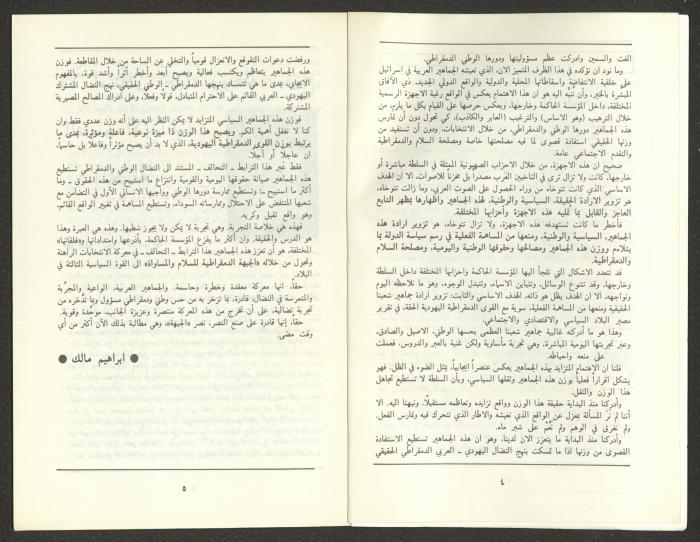 الغث والسمين وادركت عظم مسؤوليتها ودورها الوطني الدمقراطي.
وما نود ان نؤكده في هذا الظرف المتميز الان، الذي تعيشه الجماهير العربية في اسرائيل
على خلفية الانتفاضة واسقاطاتها المحلية والدولية والواقع الدولي الجديد، ذي الآفاق
المبشرة بالخير، وأن ننبّه اليه هو ان هذا الاهتمام يعكس في الواقع رغبة الاجهزة الرسمية
المختلفة، داخل المؤسسة الحاكمة وخارجها، ويعكس حرصها على القيام بكل ما يلزم، من
خلال الترهيب (وهو الاساس) والترغيب (العابر والكاذب)، كي تحول دون أن تمارس
هذه الجماهير دورها الوطني والدمقراطي، من خلال الانتخابات، ودون أن تستفيد من
وزنها الحقيقي استفادة قصوى لما فيه مصلحتها خاصة ومصلحة السلام والدمقراطية
والتقدم الاجتماعي عامة.
صحيح ان هذه الاجهزة، من خلال الاحزاب الصهيونية الممثلة في السلطة مباشرة أو
خارجها، كانت ولا تزال ترى في الناخبين العرب مصدرا بل مخزنا للاصوات، الا ان الهدف
الاساسي الذي كانت تتوخاه من وراء الحصول على الصوت العربي، وما زالت تتوخاه،
هو تزوير الارادة الحقيقة، السياسية والوطنية، لهذه الجماهير واظهارها بمظهر التابع
العاجز والقابل بما تمليه هذه الاجهزة وأحزابها المختلفة.
فأخطر ما كانت تستهدفه هذه الاجهزة، ولا تزال تتوخاه، هو تزوير ارادة هذه
الجماهير، السياسية والوطنية، ومنعها من المساهمة الفعلية في رسم سياسة الدولة بما
يتلاءم ووزن هذه الجماهير ومصالحها وحقوقها الوطنية واليومية، ومصلحة السلام
والدمقراطية.
قد تتعدد الاشكال التي تلجأ اليها المؤسسة الحاكمة واحزابها المختلفة داخل السلطة
وخارجها، وقد تتنوع الوسائل، وتتباين الاسماء، وتتبدل الوجوه، وهو ما نلاحظه اليوم
ونواجهه، الا ان الهدف يظل هو ذاته، الهدف الاساسي والثابت: تزوير ارادة جماهير شعبنا
الحقيقية ومنعها من المساهمة الفعلية، سوية مع القوى الدمقراطية اليهودية الحقة، في تقرير
مصير البلاد السياسي والاقتصادي والاجتماعي.
وهذا هو ما أدركته غالبية جماهير شعبنا العظمى بحسها الوطني، الاصيل والصادق،
وعبر تجربتها اليومية المباشرة، وهي تجربة مأساوية ولكن غنية بالعبر والدروس، فعملت
على منعه واحباطه.
قلنا ان الاهتمام المتزايد بهذه الجماهير يعكس عنصراً ايجابياً، يمثل الضوء في الظل. فهو
يشكل اقراراً فعلياً بوزن هذه الجماهير وثقلها السياسي، وبأن السلطة لا تستطيع تجاهل
هذا الوزن والثقل.
وأدركنا منذ البداية حقيقة هذا الوزن وواقع تزايده وتعاظمه مستقبلاً. ونبهنا اليه. الا
أننا لم نر المسألة بمعزل عن الواقع الذي نعيشه والاطار الذي نتحرك فيه ونمارس الفعل.
ولم نغرق في الوهم ولم نَعُمْ على شبر ماء.
وأدركنا منذ البداية ما يتعزز الان لدينا، وهو ان هذه الجماهير تستطيع الاستفادة
القصوى من وزنها اذا ما تمسكت بنهج النضال اليهودي ـ العربي الدمقراطي الحقيقي
٤
ورفضت دعوات التقوقع والانعزال قومياً والتخلي عن الساحة من خلال المقاطعة. فوزن
هذه الجماهير يتعاظم ويكتسب فعالية ويصبح أبعد وأخطر أثراً وأشد قوة، بالمفهوم
الايجابي، بمدى ما هي تتمسك بنهجها الدمقراطي ـ الوطني الحقيقي، نهج النضال المشترك
اليهودي ـ العربي القائم على الاحترام المتبادل، قولا وفعلاً، وعلى ادراك المصالح المصيرية
المشتركة.
فوزن هذه الجماهير السياسي المتزايد لا يمكن النظر اليه على أنه وزن عددي فقط وان
كنا لا نغفل أهمية الكم. ويصبح هذا الوزن ذا ميزة نوعية، فاعلة ومؤثرة، بمدى ما
يرتبط بوزن القوى الدمقراطية اليهودية، الذي لا بد أن يصبح مؤثراً وفاعلاً بل حاسماً،
ان عاجلا أو آجلا.
فقط عبر هذا الترابط ـ التحالف ـ المستند الى النضال الوطني والدمقراطي تستطيع
هذه الجماهير صيانة حقوقها اليومية والقومية وانتزاع ما استبيح من هذه الحقوق ـ وما
أكثر ما استبيح ـ: وتستطيع ممارسة دورها الوطني وواجبها الانساني الأول في التضامن مع
شعبها المنتفض على الاحتلال وممارساته السوداء، وتستطيع المساهمة في تغيير الواقع القائم،
وهو واقع ثقيل وكريه.
فهذه هي خلاصة التجربة. وهي تجربة لا يمكن ولا يجوز شطبها. وهذه هي العبرة وهذا
هو الدرس والحقيقة. وان أكثر ما يفزع المؤسسة الحاكمة، بأذرعها وامتداداتها وفقاعاتها
المختلفة، هو أن تعزز هذه الجماهير هذا الترابط ـ التحالف ـ في معركة الانتخابات الراهنة
وتحول من خلاله «الجبهة الدمقراطية للسلام والمساواة» الى القوة السياسية الثالثة في
البلاد.
حقاً، انها معركة معقدة وخطرة وحاسمة. والجماهير العربية، الواعية والمجرّبة
والمتمرسة في النضال، قادرة، بما تزخر به من حس وطني ودمقراطي مسؤول وبما تدّخره من
تجربة نضالية، على أن تخرج من هذه المعركة منتصرة وعزيزة الجانب، موحّدة وقوية.
حقاً، إنها قادرة على صنع النصر، نصر «الجبهة»، وهي مطالبة بذلك الآن أكثر من أي
وقت مضى.
● ابراهيم مالك ●
٥